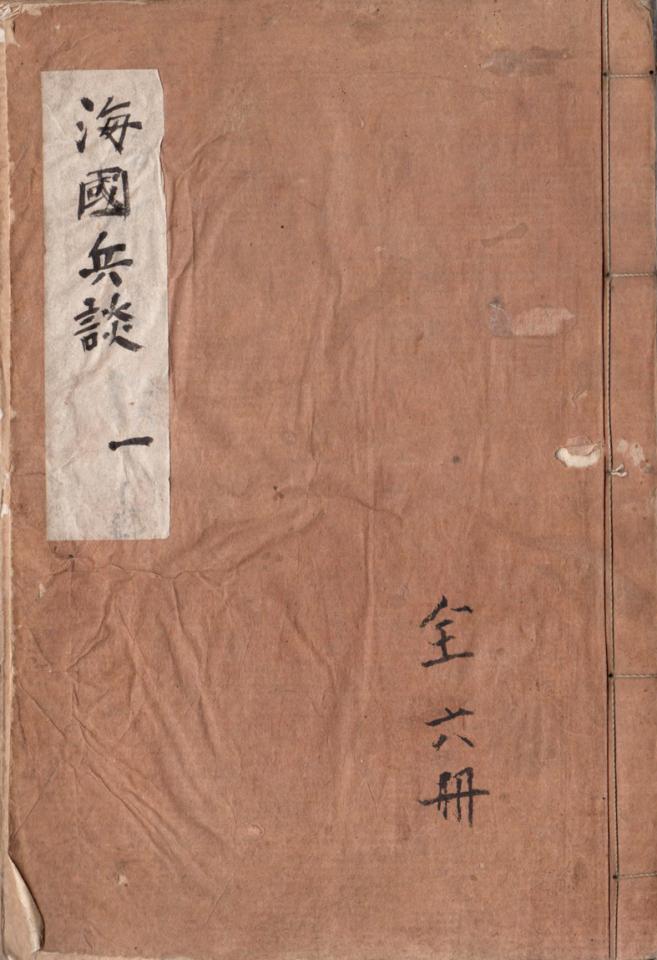 海國兵談 一
全六冊